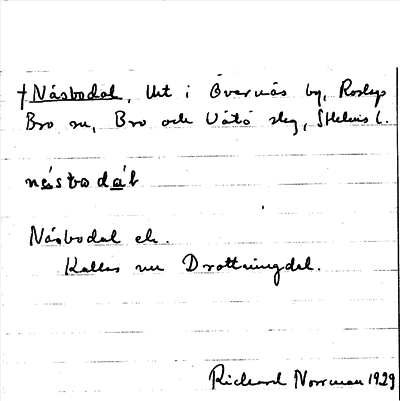 † Näsbodal, Ut i Övernäs by, Roslags
Bro sn, Bro och Vätö slg, Sthlms l.
näsbodál
Näsbodal ek.
Kallas nu Drottningdal.
Richard Norrman 1929